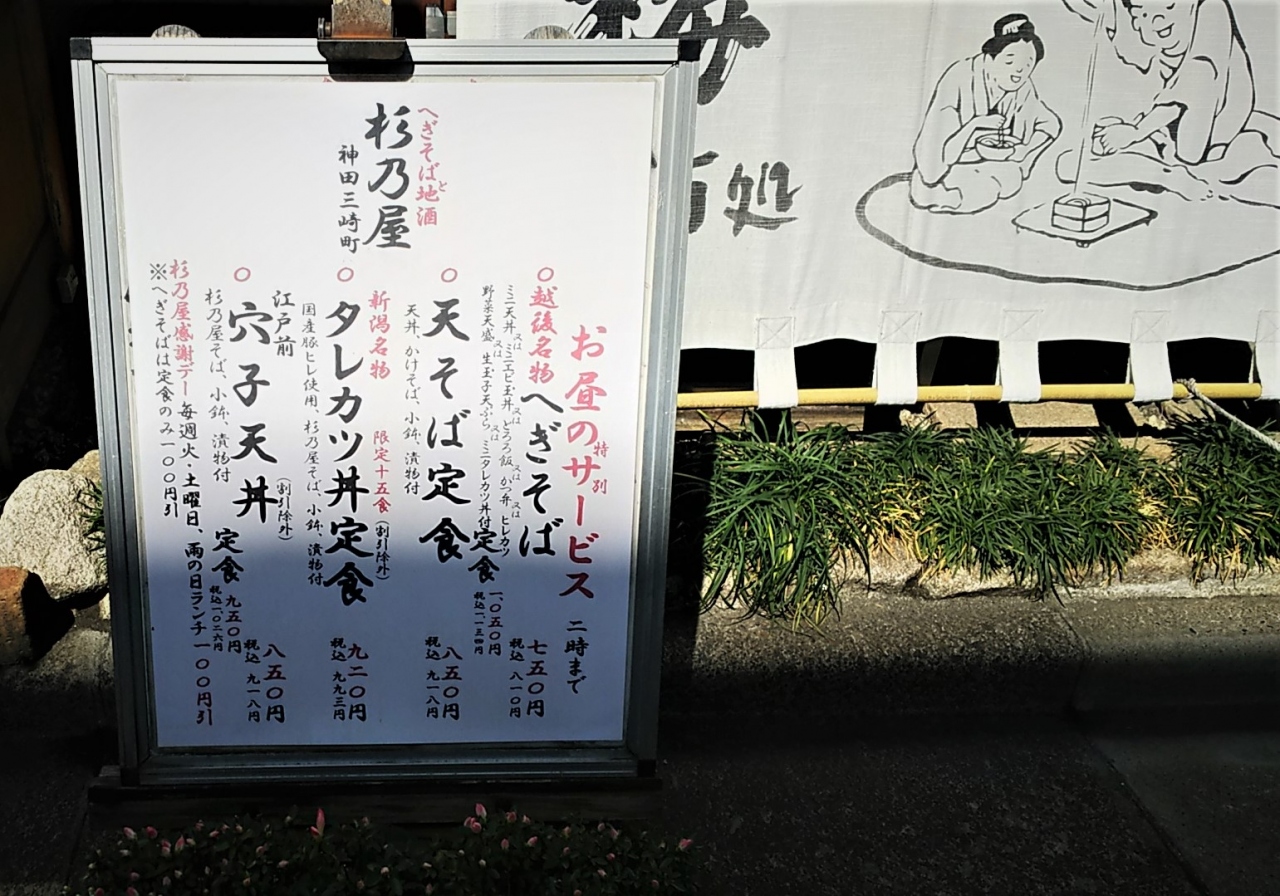 へぎそばと地酒
杉乃屋
神田三崎町
お昼の特別サービス 二時まで
○越後名物 へぎそば 七五〇円
税込 八一〇円
ミニ天丼又はミニエビ玉丼又はとろろ飯又はかつ弁又はヒレカツ
野菜天盛又は生玉子天ぷら又はミニタレカツ丼付 定食 一、〇五〇円
税込一、一三四円
○天そば定食 八五〇円
税込 九一八円
天丼、かけそば、小鉢、漬物付
新潟名物 限定十五食(割引除外)
○タレカツ丼定食 九二〇円
税込 九九三円
国産豚ヒレ使用、杉乃屋そば、小鉢、漬物付
江戸前
○穴子天丼(割引除外) 八五〇円
税込 九一八円
定食 九五〇円
税込一、〇二六円
杉乃屋そば、小鉢、漬物付
杉乃屋感謝デー 毎週火・土曜日、雨の日ランチ一〇〇円引
※へぎそばは定食のみ一〇〇円引
処